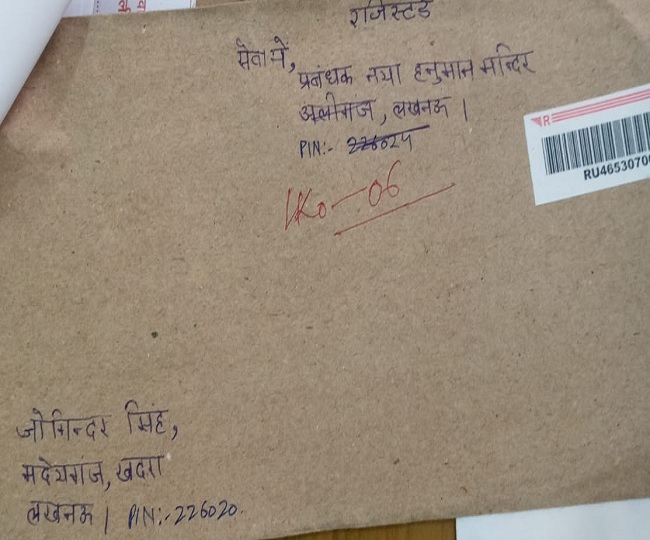 रजिस्टर्ड
सेवा में,
प्रबंधक नया हनुमान मन्दिर
अलीगंज, लखनऊ।
PIN:- 226024
LKO-06
R
RU4653070
जोगिन्दर सिंह,
मदेयगंज, खदरा
लखनऊ। PIN:-226020